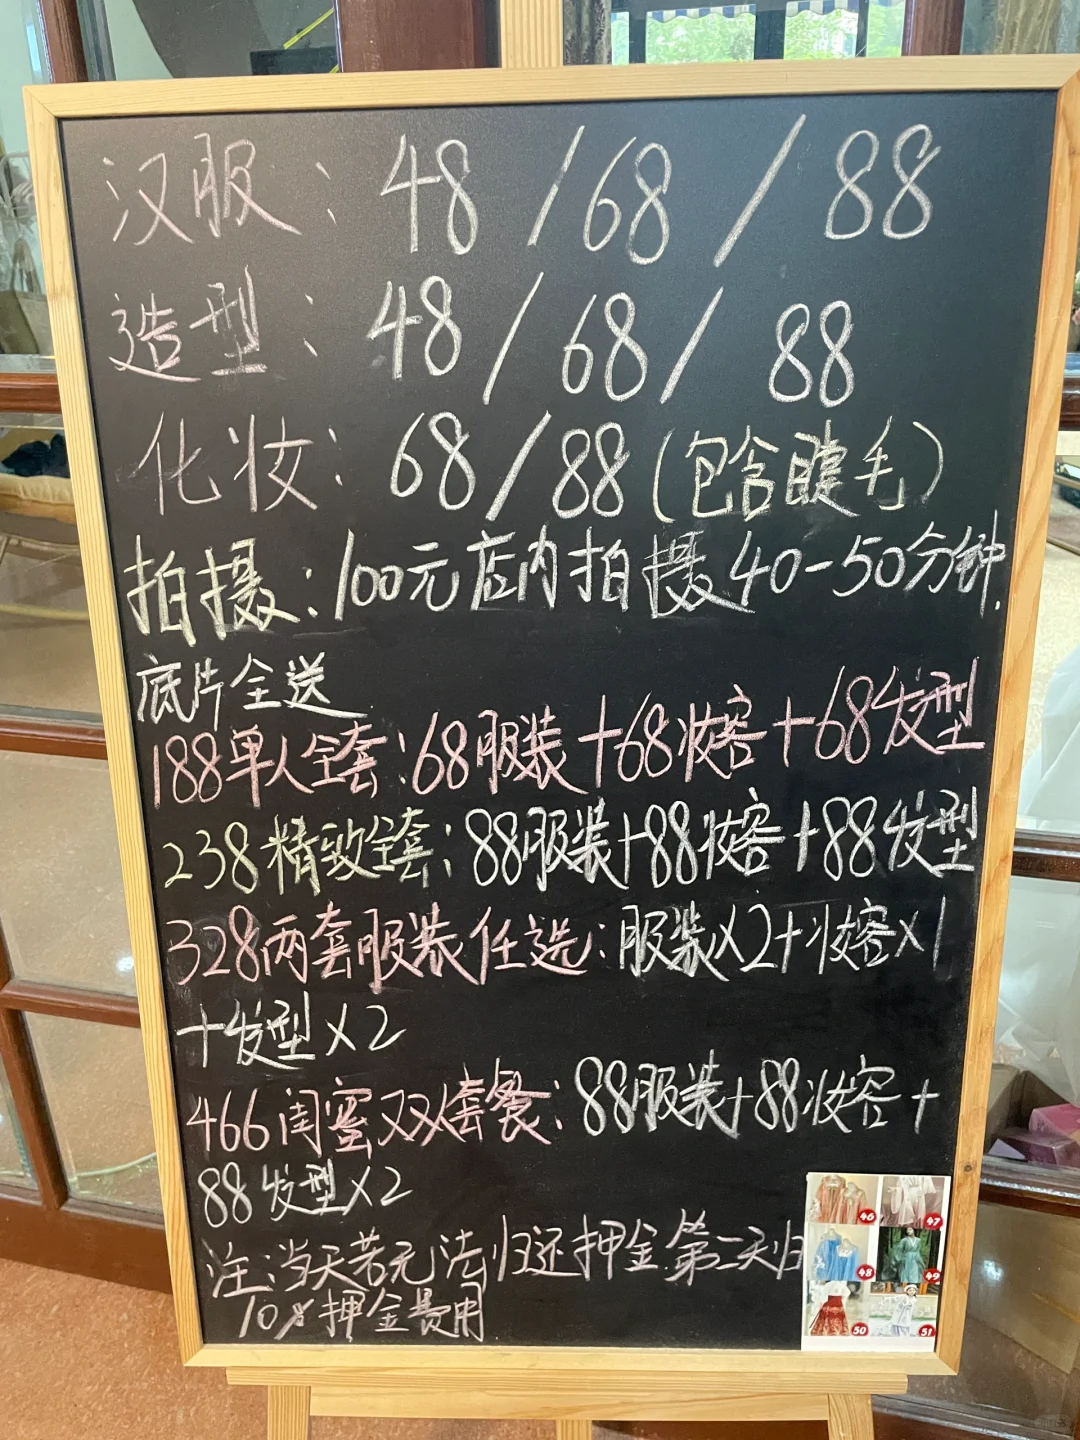 汉服：48/68/88
造型：48/68/88
化妆：68/88(包含睫毛)
拍摄：100元店内拍摄40-50分钟.
底片全送
188单人全套：68服装+68妆容+68发型
238精致全套：88服装+88妆容+88发型
328两套服装任选：服装X2+妆容X1
+发型X2
466闺蜜双双套餐：88服装+88妆容+
88发型X2
注：当天若无法归还押金.第二天归
10%押金费用
46
47
48
49
50
51